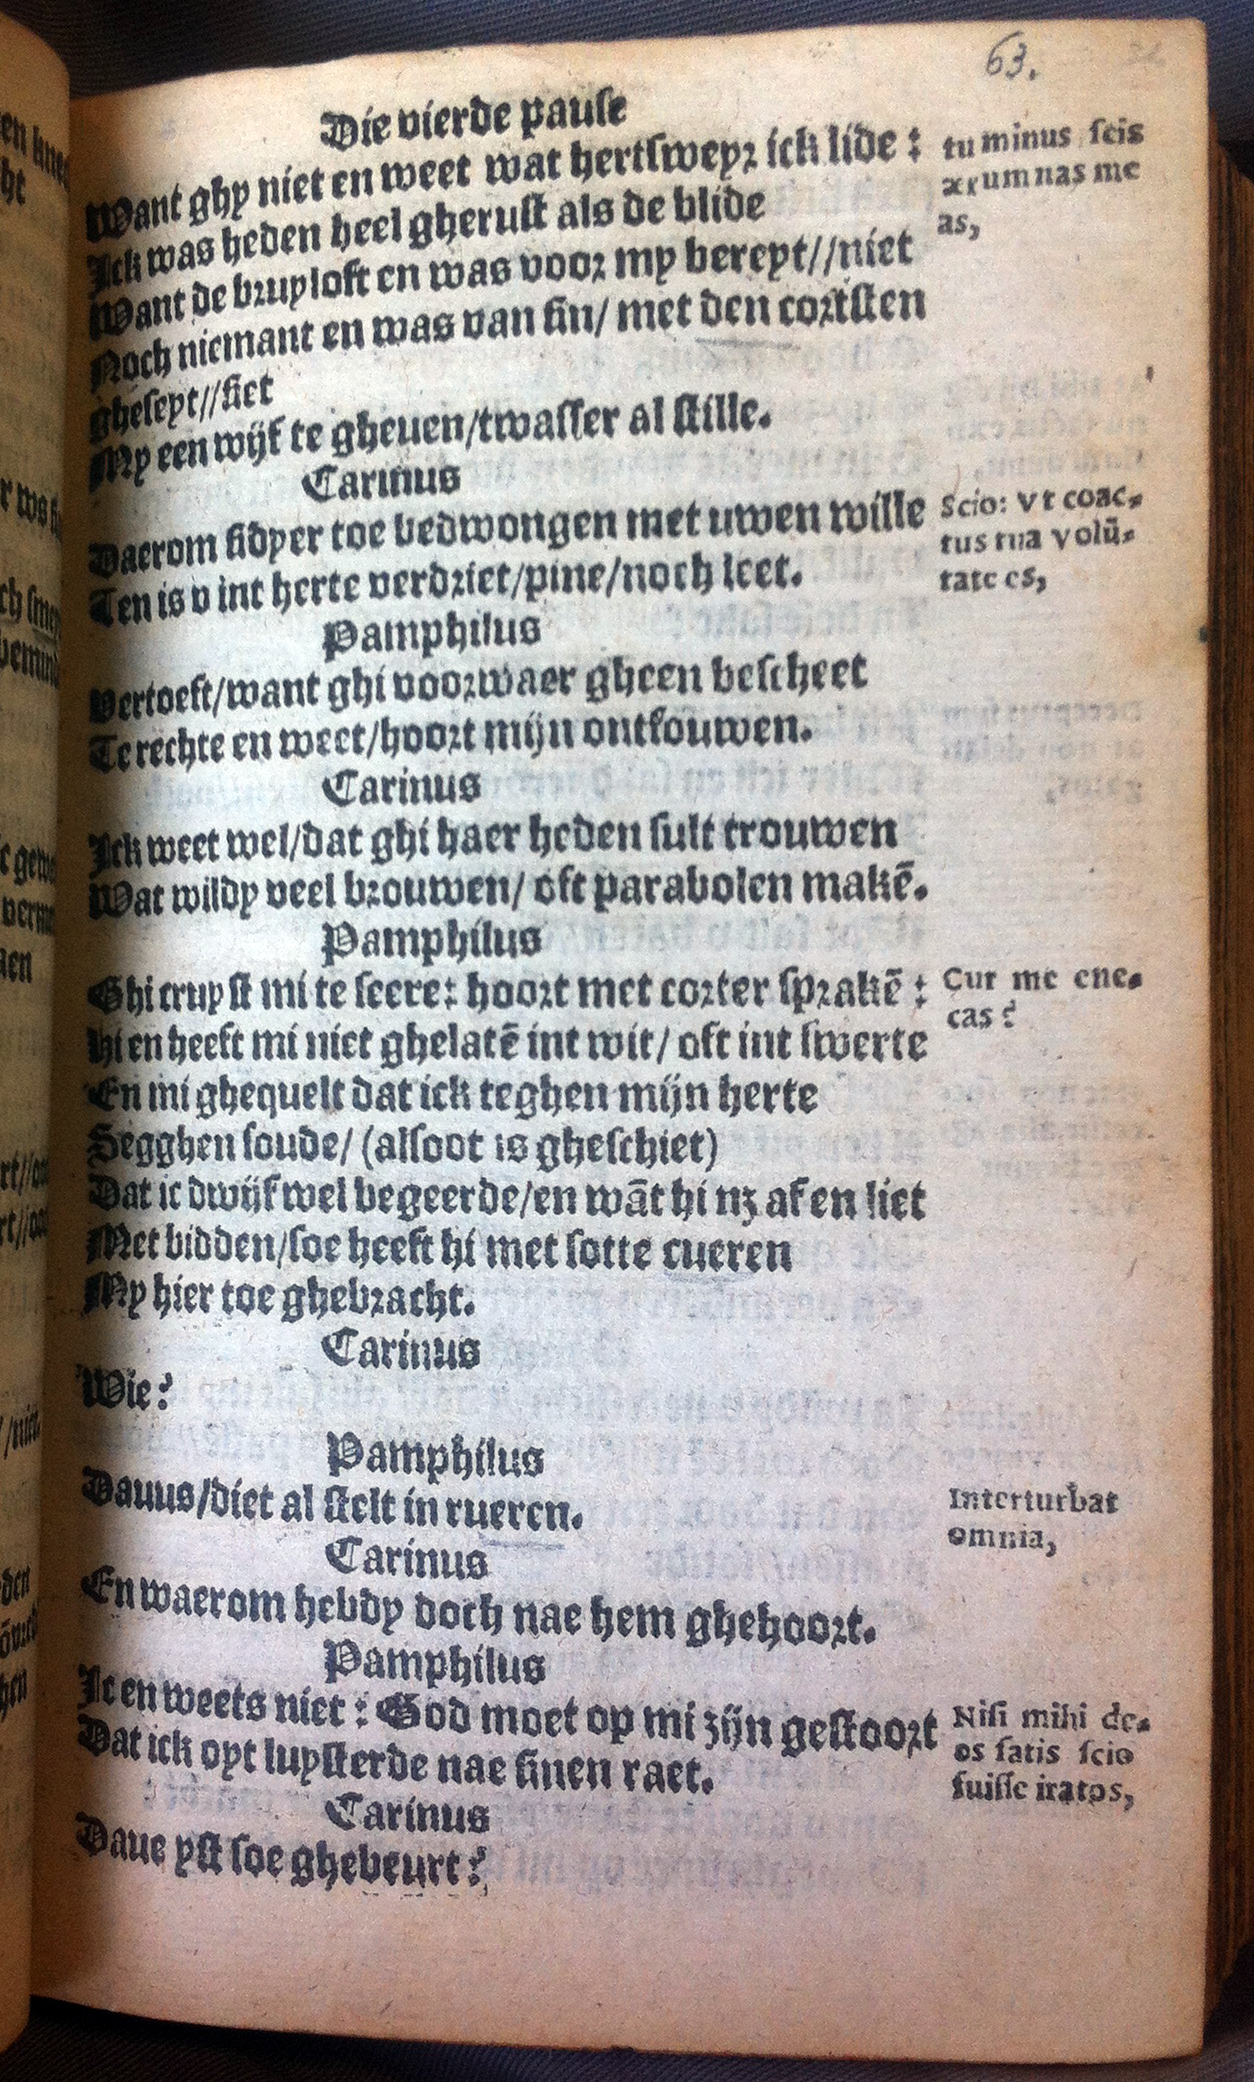 63.
Die vierde pause
Want ghy niet en weet wat hertsweyr ick lide :
tu minus scis
ærumnas me
as,
Ick was heden heel gherust als de blide
Want de bruyloft en was voor my bereyt//niet
Noch niemant en was van sin/ met den cortsten
gheseyt//siet
My een wijf te gheuen/twasser al stille.
Carinus
Daerom sidyer toe bedwongen met uwen wille
Scio: Vt coac-
tus tua volū-
tate es,
Ten is v int herte verdriet/pine/noch leet.
Pamphilus
Vertoeft/want ghi voorwaer gheen bescheet
Te rechte en weet/hoort mijn ontfouwen.
Carinus
Ick weet wel/dat ghi haer heden sult trouwen
Wat wildy veel brouwen/ oft parabolen makē.
Pamphilus
Ghi cruyst mi te seere: hoort met corter sprakē :
Cur me ene-
cas?
Hi en heeft mi niet ghelatē int wit/ oft int swerte
En mi ghequelt dat ick teghen mijn herte
Segghen soude/ (alsoot is gheschiet)
Dat ic dwijf wel begeerde/en wāt hi nz af en liet
Met bidden/soe heeft hi met sotte cueren
My hier toe ghebracht.
Carinus
Wie?
Pamphilus
Dauus/diet al stelt in rueren.
Interturbat
omnia,
Carinus
En waerom hebdy doch nae hem ghehoort.
Pamphilus
Ic en weets niet : God moet op mi zijn gestoort
Nisi mihi de-
os satis scio
fuisse iratos,
Dat ick oyt luysterde nae sinen raet.
Carinus
Daue yst soe ghebeurt?